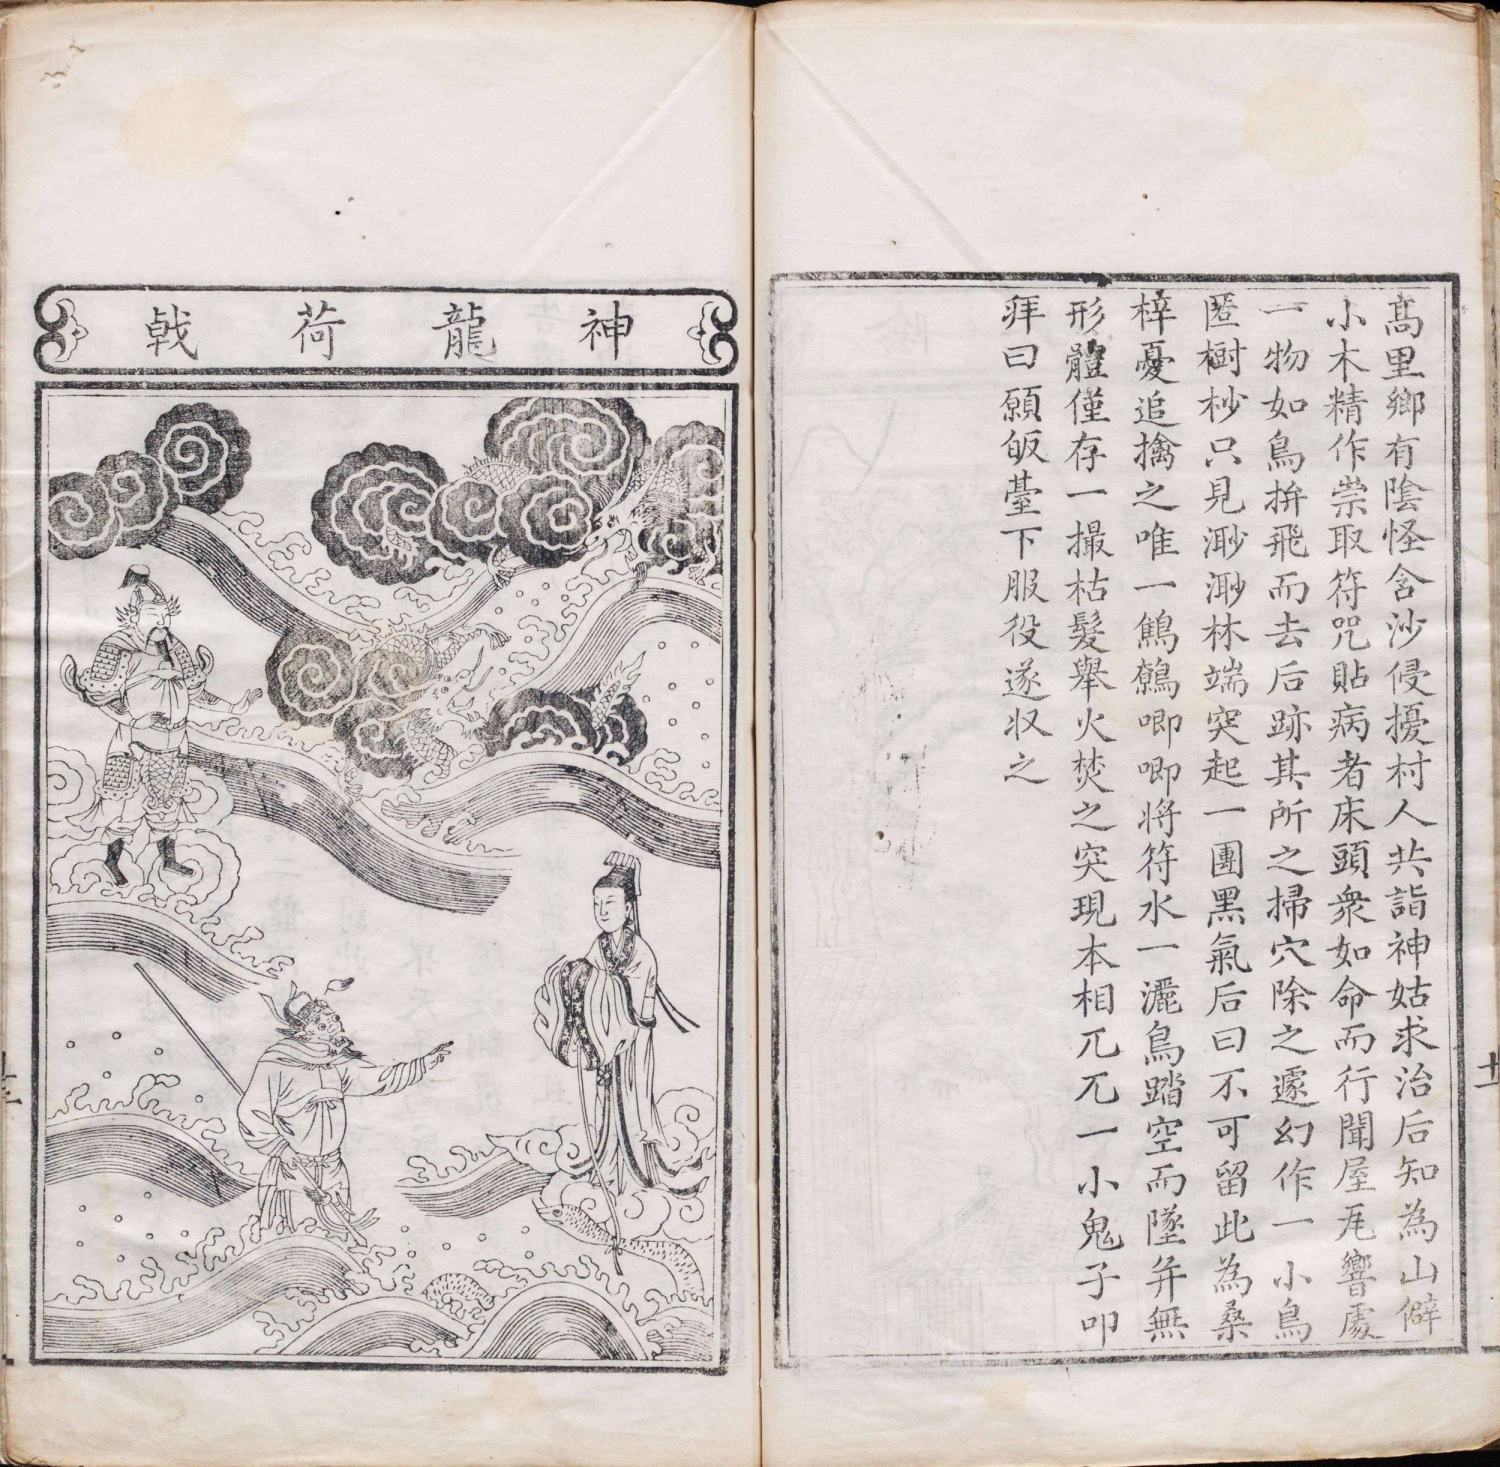 高里鄉有陰怪含沙侵擾村人共詣神姑求治后知為山僻
小木精作祟取符咒貼病者床頭衆如命而行聞屋瓦響處
一物如鳥拚飛而去后跡其所之掃穴除之遽幻作一小鳥
匿樹杪只見渺渺林端突起一團黑氣后曰不可留此為桑
梓憂追擒之唯一鷦鷯唧唧将符水一灑鳥踏空而墜并無
形體僅存一撮枯髮舉火焚之突現本相兀兀一小鬼子叩
拜曰願皈臺下服役遂収之
十二
神龍荷戟
十三